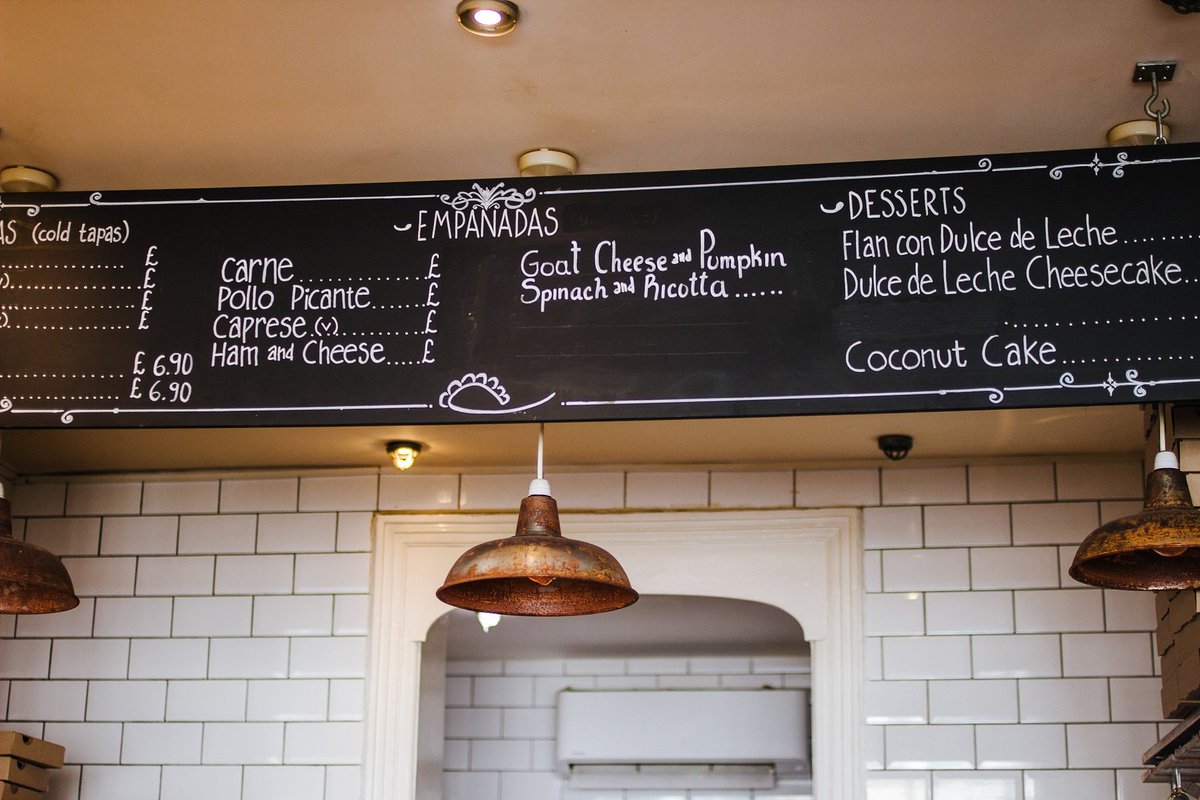 AS (cold tapas)
£
£
£
£
£ 6.90
£ 6.90
EMPANADAS
Carne..................£
Pollo Picante.......£
Caprese.(v)............£
Ham and Cheese.....£
Goat Cheese and Pumpkin
Spinach and Ricotta......
DESSERTS
Flan con Dulce de Leche........
Dulce de Leche Cheesecake..
Coconut Cake................